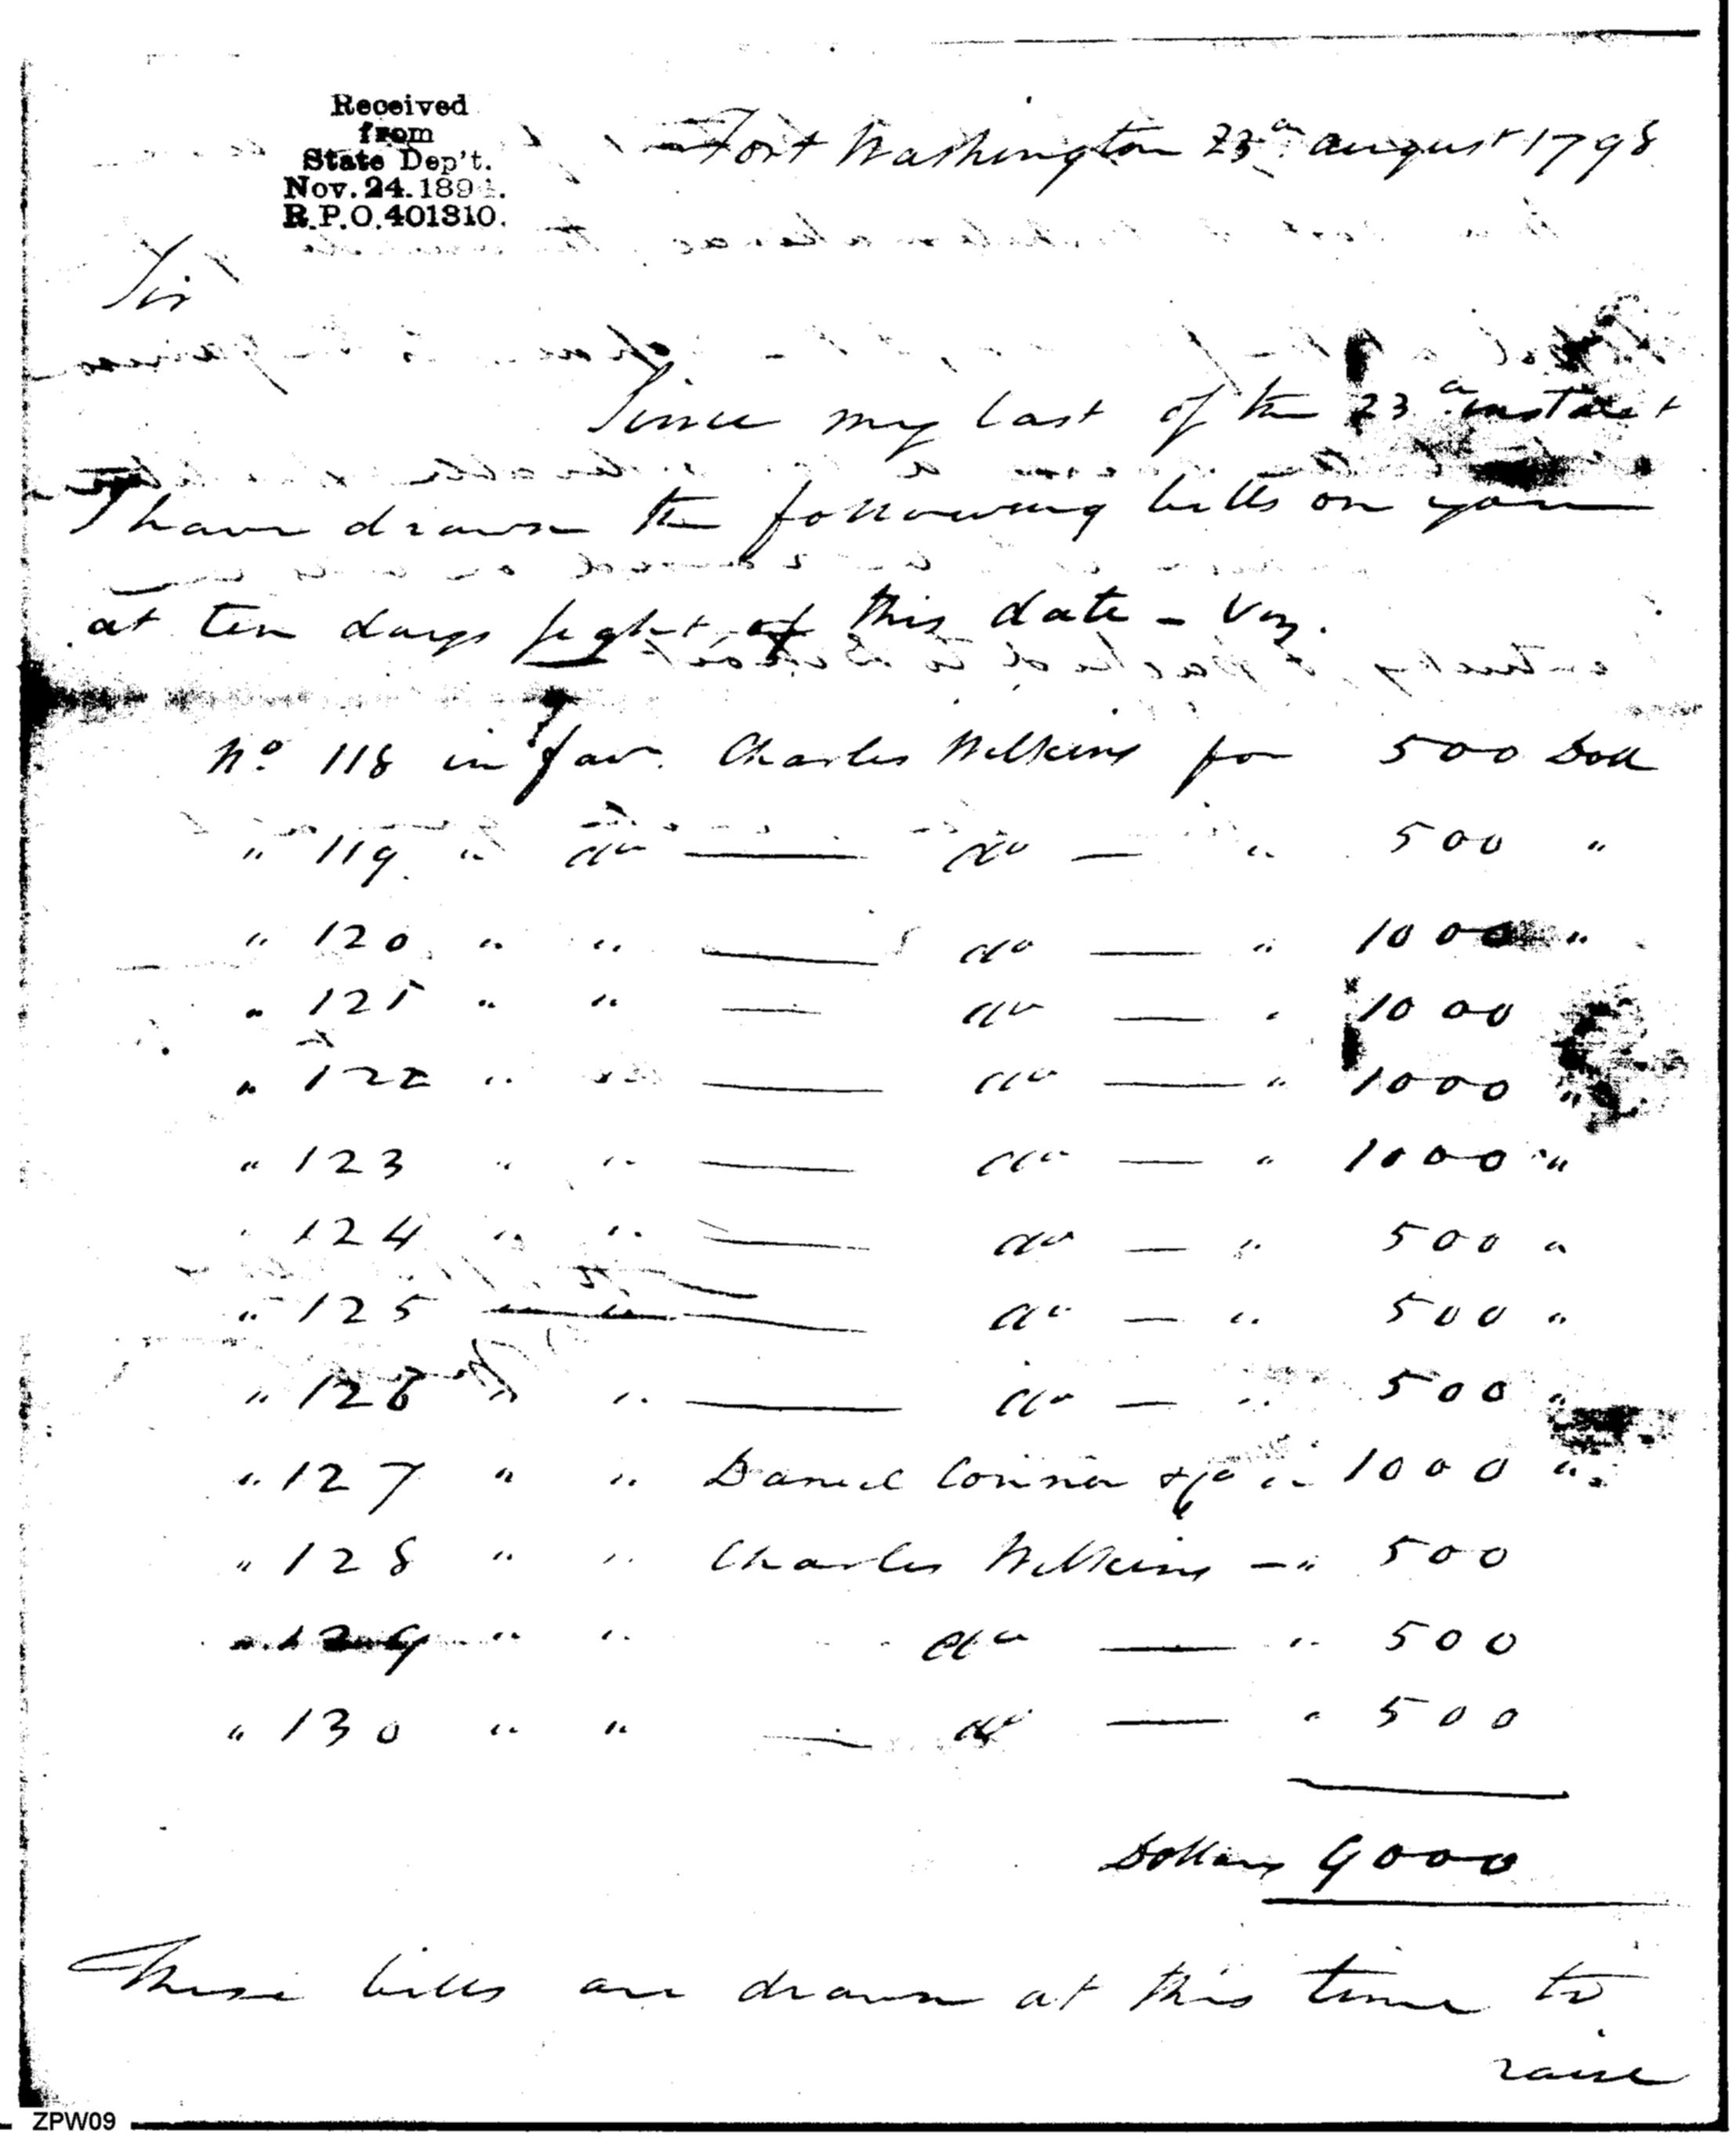 Received
from
State Dep't.
Nov. 24. 1894.
R.P.O. 401310.
Fort Washington 23d august 1798
Sir
Since my last of the 23d instant
I have drawn the following bills on you
at ten days sight of this date - Viz.
No. 118 in fav. Charles Wilkins for 500 Doll
" 119 " do — do — " 500 "
" 120 " " — do — " 1000 "
" 121 " " — do — " 1000
" 122 " do — do — " 1000 "
" 123 " " — do — " 1000 "
" 124 " " — do — " 500 "
" 125 " " — do — " 500 "
" 126 " " — do — " 500 "
" 127 " " Daniel Conner & Co " 1000 "
" 128 " " Charles Wilkins — " 500
" 129 " " do — " 500
" 130 " " — do — " 500
Dollars 9000
These bills are drawn at this time to
raise
ZPW09